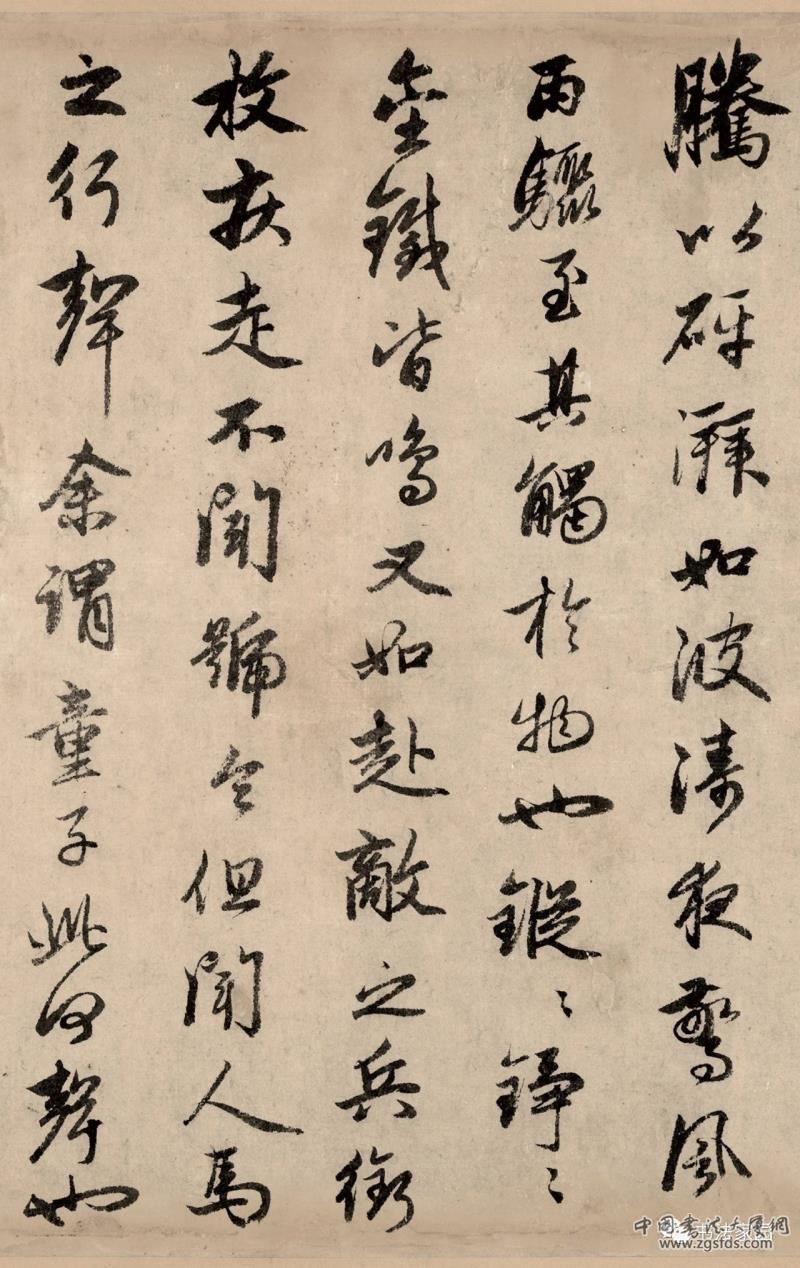 騰以砰湃如波涛夜驚風
雨驟至其觸於物也鏦〻錚〻
金鐵皆鳴又如赴敵之兵銜
枚疾走不聞號令但聞人馬
之行聲余謂童子此何聲也
中国书法大厦網
书法家园
www.zgsfds.com